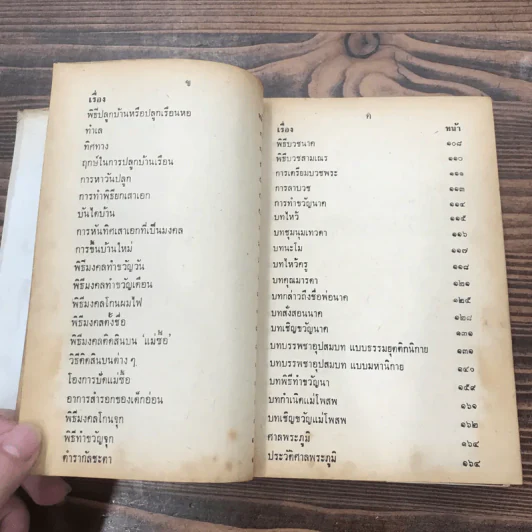 ข
เรื่อง
พิธีปลูกบ้านหรือปลูกเรือนหอ
ทำเล
ทิศทาง
ฤกษ์ในการปลูกบ้านเรือน
การหาวันปลูก
การทำพิธียกเสาเอก
บันไดบ้าน
การหันทิศเสาเอกที่เป็นมงคล
การขึ้นบ้านใหม่
พิธีมงคลทำขวัญวัน
พิธีมงคลทำขวัญเดือน
พิธีมงคลโกนผมไฟ
พิธีมงคลตั้งชื่อ
พิธีมงคลติดสินบน 'แม่ซื้อ'
วิธีติดสินบนต่าง ๆ
โองการปัดแม่ซื้อ
อาการสำรอกของเด็กอ่อน
พิธีมงคลโกนจุก
พิธีทำขวัญจุก
ตำรากัลชะตา
ค
เรื่อง หน้า
พิธีบวชนาค ๑๐๘
พิธีบวชสามเณร ๑๑๐
การเตรียมบวชพระ ๑๑๑
การลาบวช ๑๑๓
การทำขวัญนาค ๑๑๔
บทไหว้ ๑๑๕
บทชุมนุมเทวดา ๑๑๖
บทนะโม ๑๑๗
บทไหว้ครู ๑๑๘
บทคุณมารดา ๑๒๑
บทกล่าวถึงชื่อพ่อนาค ๑๒๕
บทสั่งสอนนาค ๑๒๘
บทเชิญขวัญนาค ๑๓๑
บทบรรพชาอุปสมบท แบบธรรมยุตติกนิกาย ๑๓๑
บทบรรพชาอุปสมบท แบบมหานิกาย ๑๔๐
บทพิธีทำขวัญนา ๑๕๙
บทกำเนิดแม่โพสพ ๑๖๑
บทเชิญขวัญแม่โพสพ ๑๖๒
ศาลพระภูมิ ๑๖๔
ประวัติศาลพระภูมิ ๑๖๔